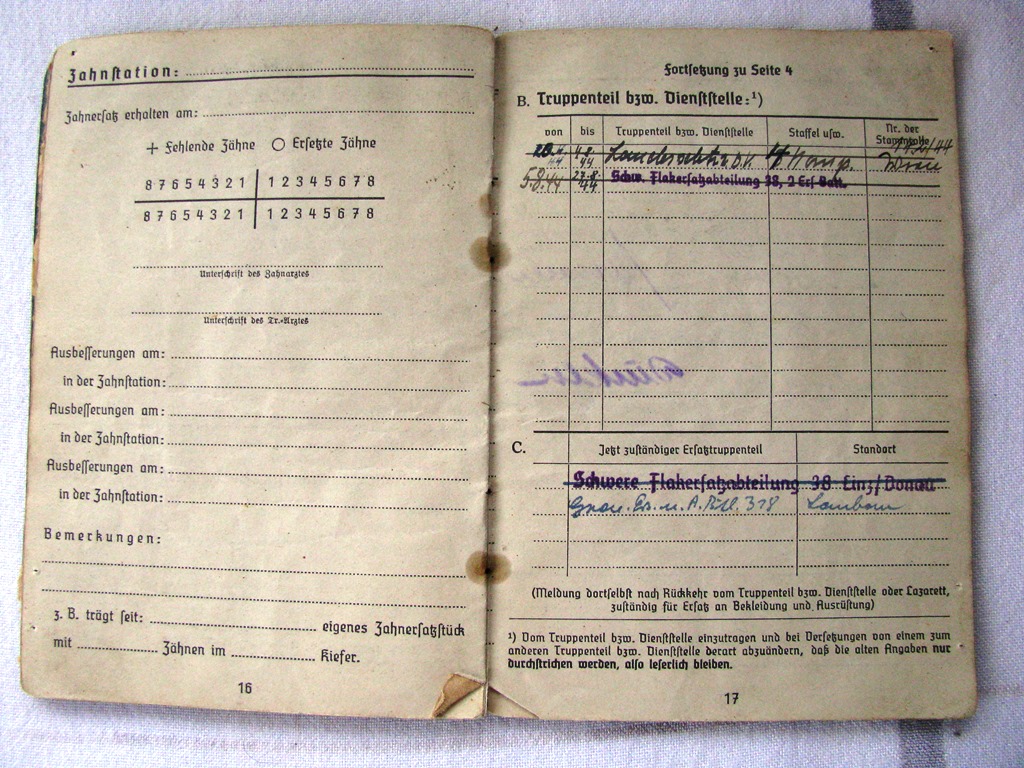 Zahnstation:
Zahnersatz erhalten am:
+ Fehlende Zähne ○ Ersetzte Zähne
8 7 6 5 4 3 2 1 1 2 3 4 5 6 7 8
8 7 6 5 4 3 2 1 1 2 3 4 5 6 7 8
Unterschrift des Zahnarztes
Unterschrift des Tr.-Arztes
Ausbesserungen am:
in der Zahnstation:
Ausbesserungen am:
in der Zahnstation:
Ausbesserungen am:
in der Zahnstation:
Bemerkungen:
z. B. trägt seit: eigenes Zahnersatzstück
mit Zähnen im Kiefer.
16
Fortsetzung zu Seite 4
B. Truppenteil bzw. Dienststelle:¹)
von bis Truppenteil bzw. Dienststelle Staffel usw. Nr. der Stammrolle
5.8.44 27.8 44 Schw. Flakersatzabteilung 38, 2 Ers Batt.
C. Jetzt zuständiger Ersatztruppenteil Standort
Schwere Flakersatzabteilung 38 Linz/Donau
Gren. Ers. u. A. Btl. 318
(Meldung dortselbst nach Rückkehr vom Truppenteil bzw. Dienststelle oder Lazarett,
zuständig für Ersatz an Bekleidung und Ausrüstung)
¹) Vom Truppenteil bzw. Dienststelle einzutragen und bei Versetzungen von einem zum
anderen Truppenteil bzw. Dienststelle derart abzuändern, daß die alten Angaben nur
durchstrichen werden, also leserlich bleiben.
17